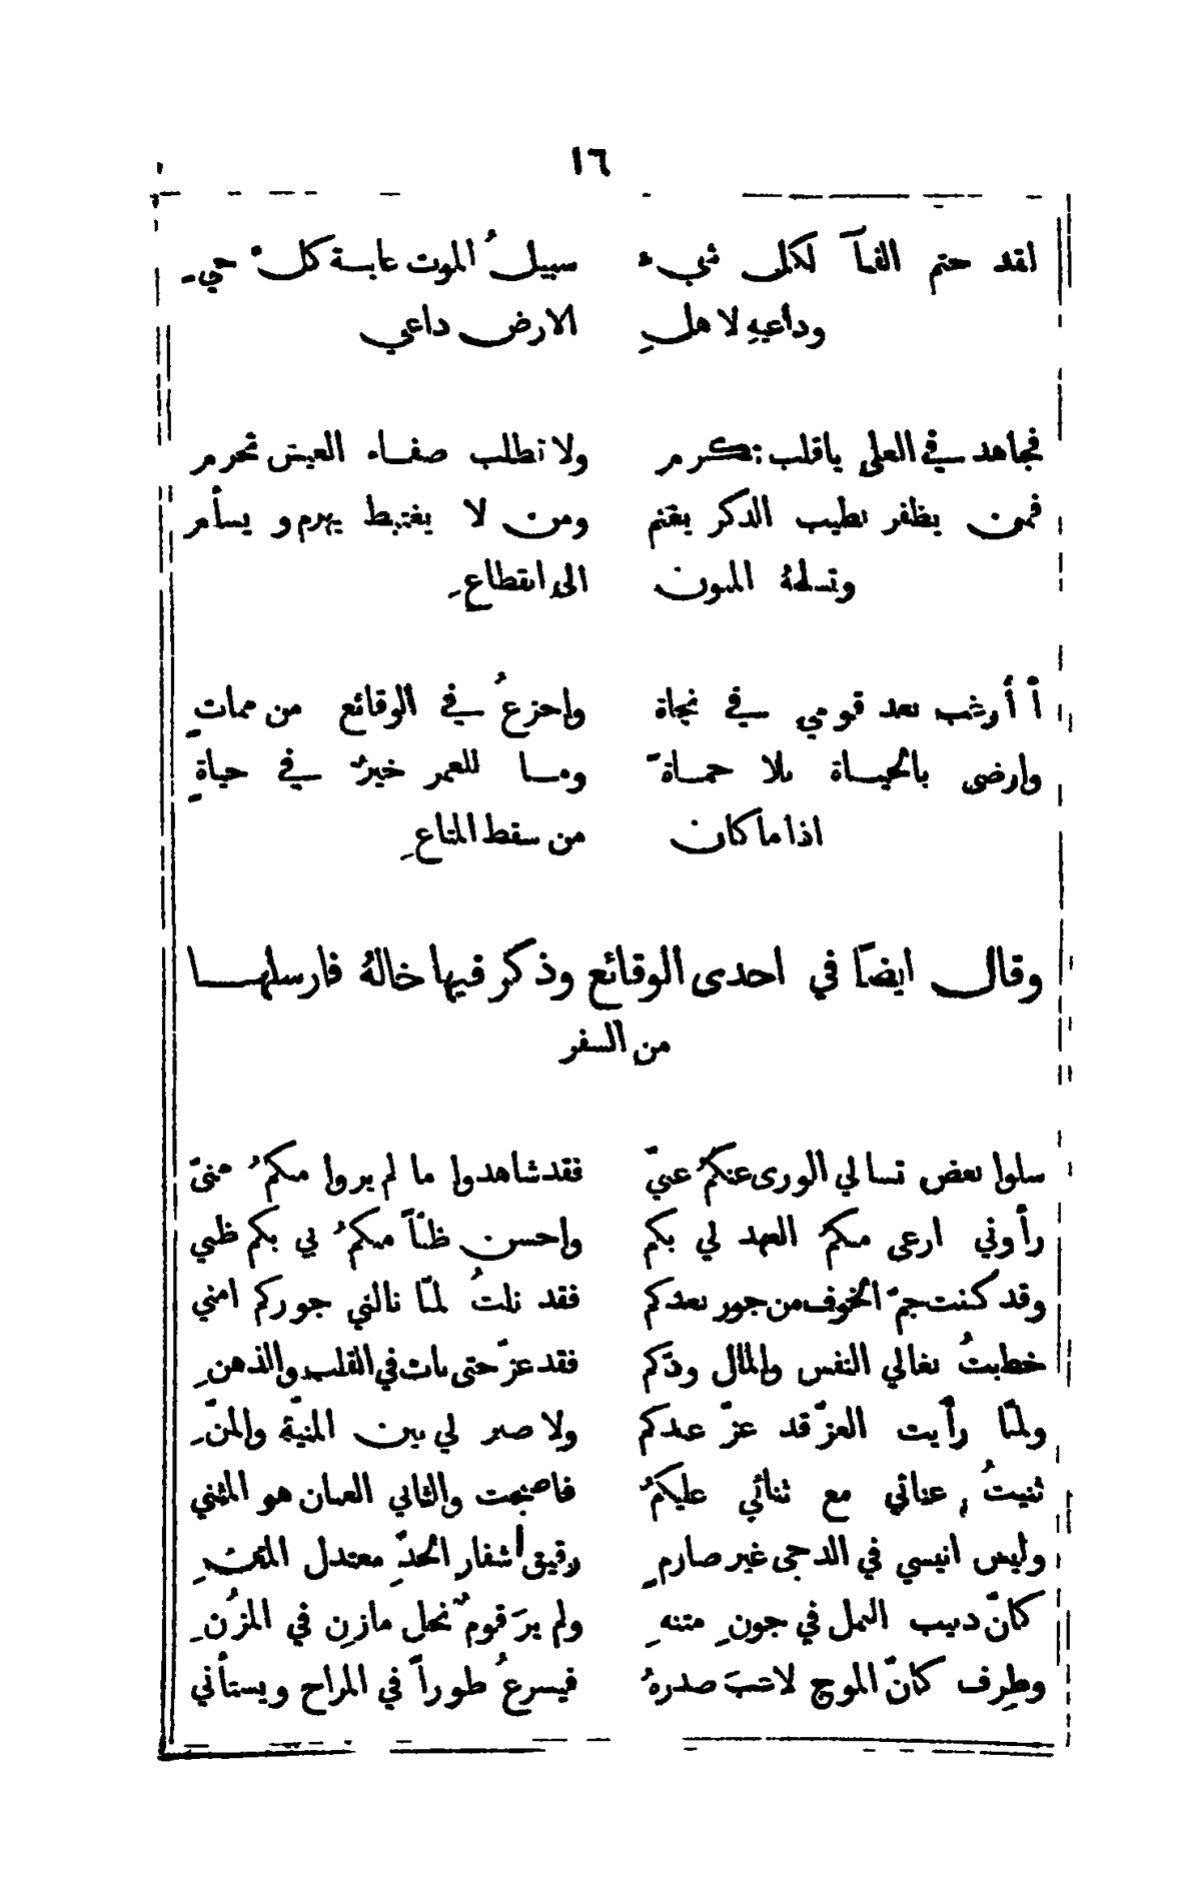 ١٦
لقد حتم الفنآ لكل شيء سبيلُ الموت غاية كل حيِ
وداعيهِ لاهلِ الارض داعي
فجاهد في العلى ياقلب تكرم ولا تطلب صفاء العيش تحرم
فمن يظفر بطيب الذكر يغنم ومن لا يغتبط يهرم و يسأم
وتسلمهُ المنون الى انقطاعِ
أ أرغب بعد قومي في نجاة واجزعُ في الوقائع من مماتٍ
وارضى بالحياة بلا حماة وما للعمر خيرٌ في حياةٍ
اذا ما كان من سقط المتاعِ
وقال ايضاً في احدى الوقائع وذكر فيها خالهُ فارسلها
من السفر
سلوا بعض تسالي الورى عنكمُ عنّي فقد شاهدوا ما لم يروا منكمُ منّي
رأوني ارعى منكمُ العهد لي بكم واحسن ظنّاً منكمُ بي بكم ظني
وقد كنت جمّ الخوف من جور بعدكم فقد نلتُ لمّا نالني جوركم امني
خطبتُ بغالي النفس والمال ودّكم فقد عزّ حتى بات في القلب والذهنِ
ولمّا رأيت العزّ قد عزّ عندكم ولا صبر لي بين المنيّة والمنّ
ثنيتُ عناني مع ثنائي عليكمُ فاصبحت والثاني العنان هو المثني
وليس انيسي في الدجى غير صارمٍ رقيق أشفار الحدّ معتدل المتنِ
كانّ دبيب النمل في جونِ متنهِ ولم يرَ قومٌ نحل مازن في المزُنِ
وطِرف كانّ الموج لاعبَ صدرهُ فيسرعُ طوراً في المراح ويستأني